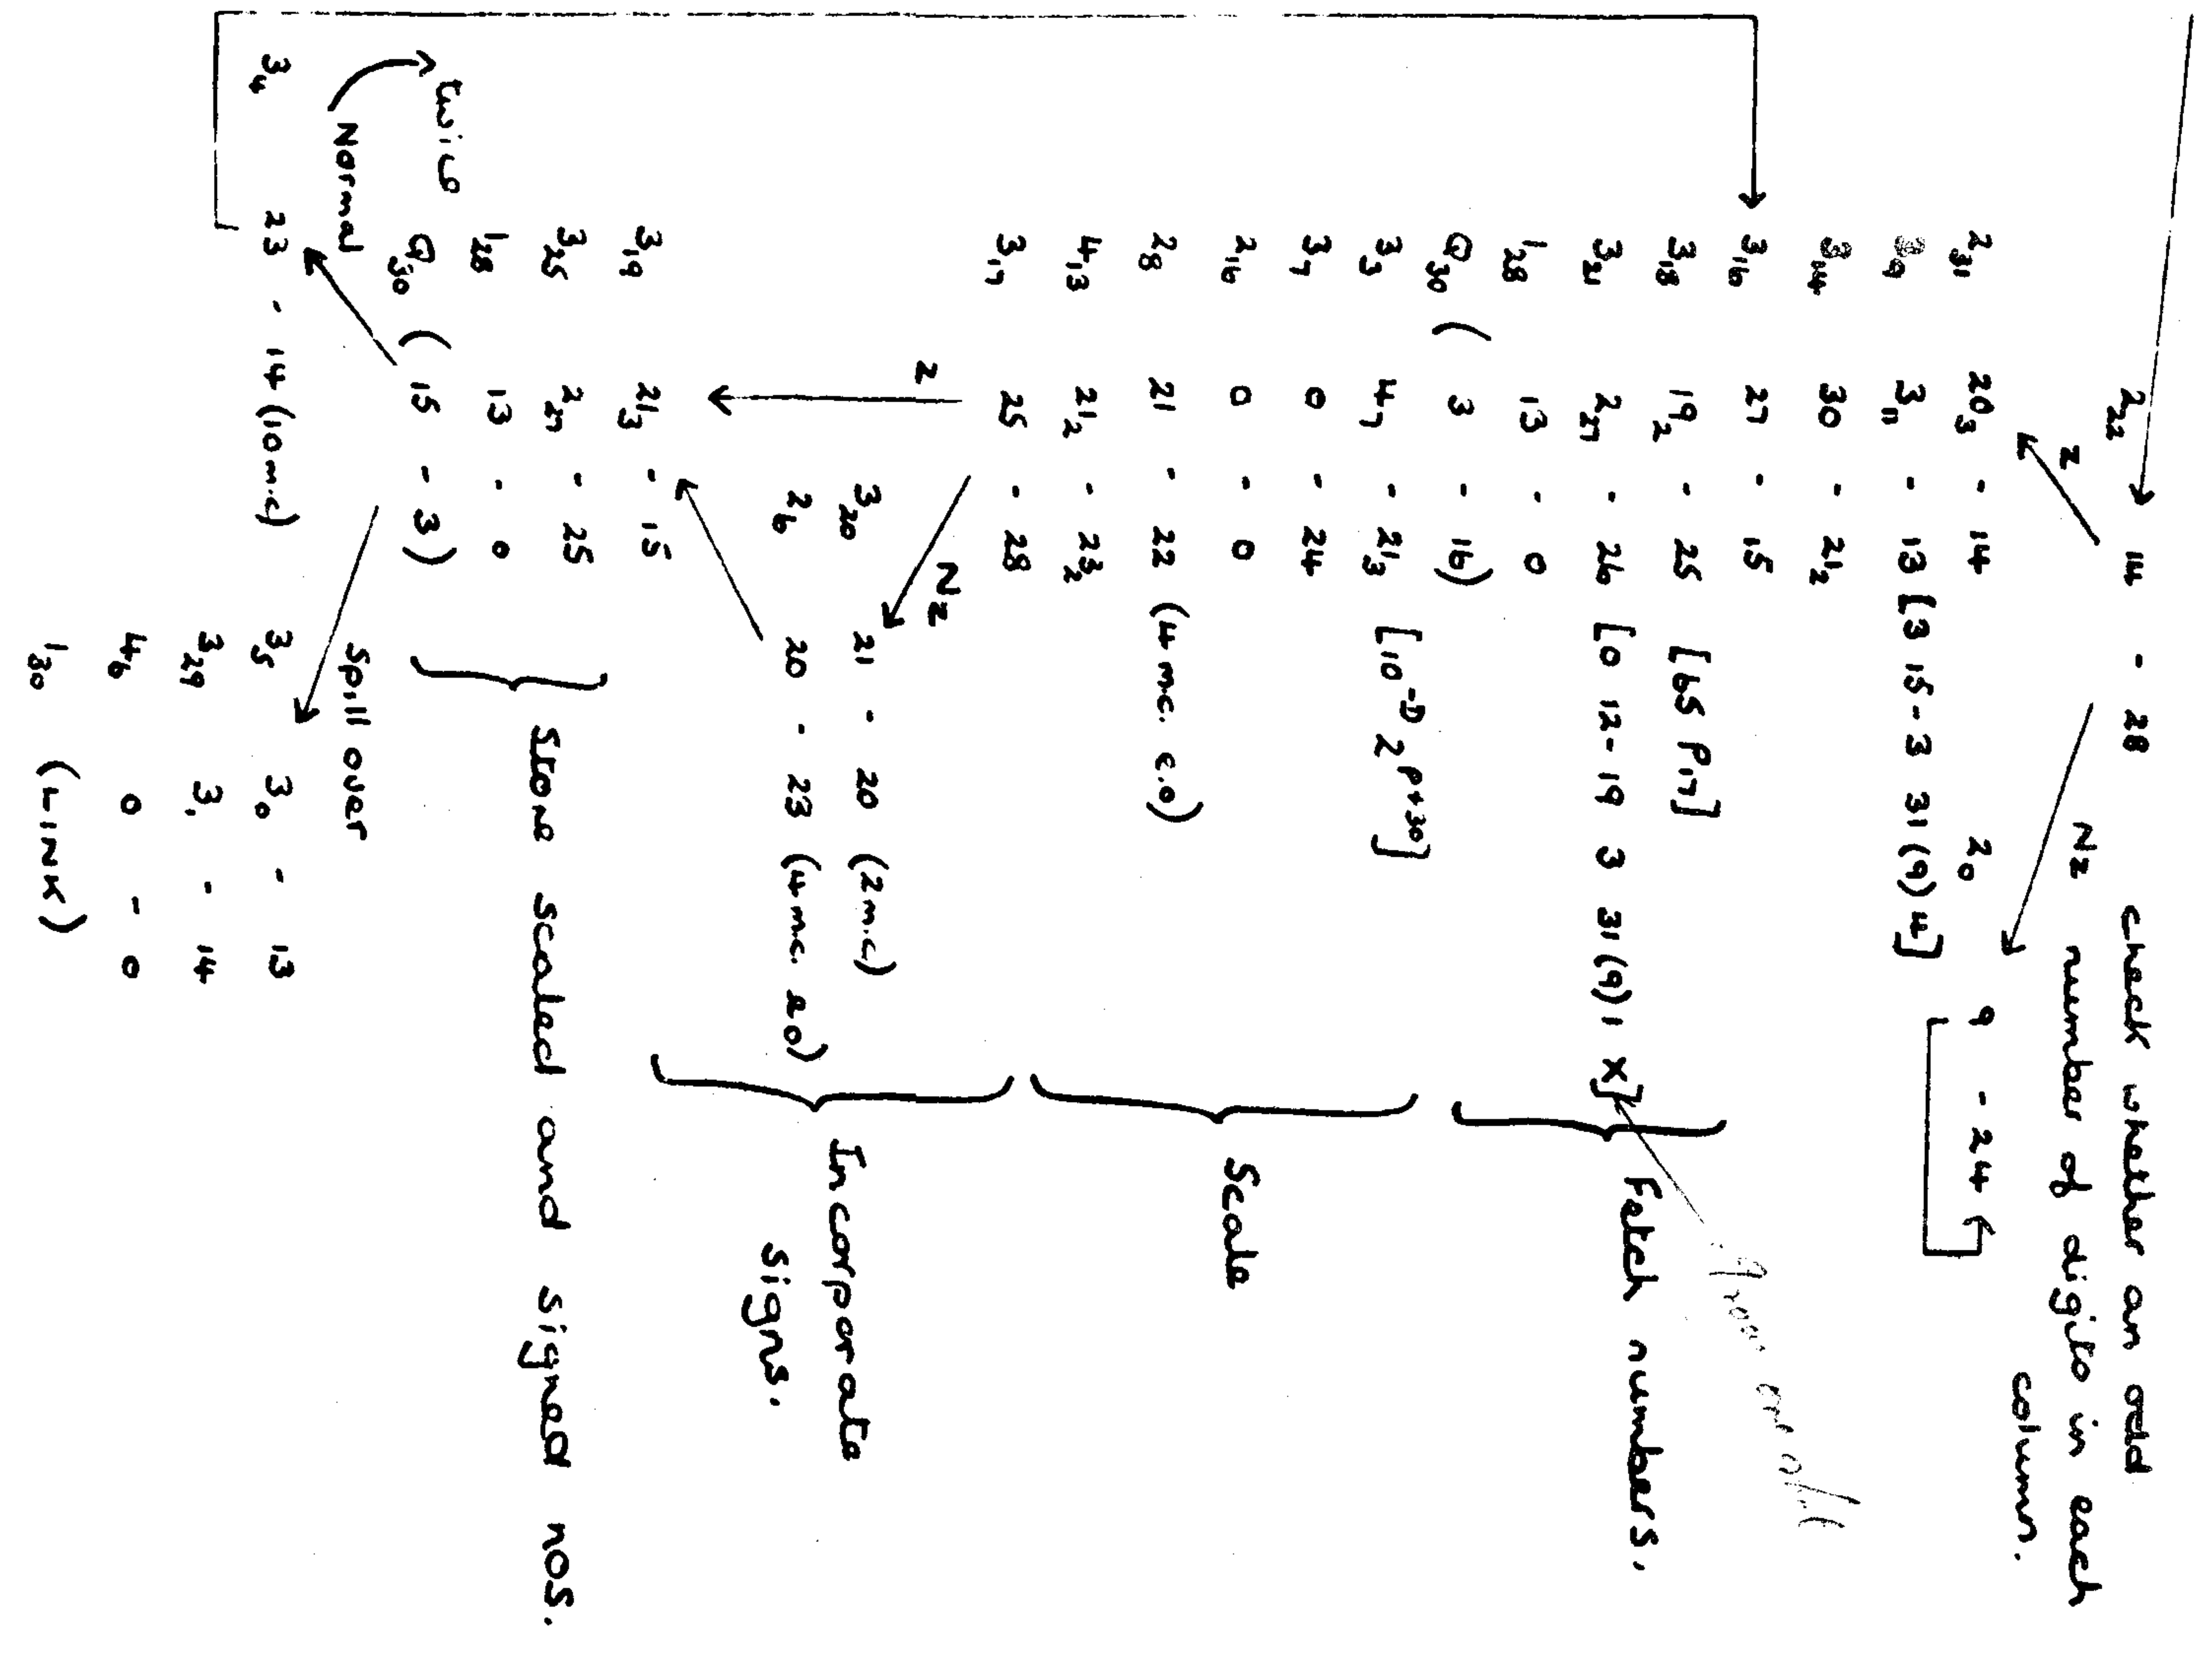 2₂₂ 14 - 28 check whether an odd
Z Nz number of digits in each
column.
2₃₁ 20₃ - 14 2₀ 9 - 24
9 3₁₁ - 13 [3 15 - 3 31 (9) 4]
3₁₄ 30 - 21₂
3₁₆ 27 - 15
3₁₈ 19₂ - 25 [65 P₁₇]
3₂₁ 2₂₇ - 26 [0 12 - 19 3 31 (9) 1 X] Fetch numbers.
1₂₈ 13 - 0
Q₃₀ (3 - 16)
3₃ 4₇ - 21₃ [10⁻ᴰ 2ᴾ⁺³⁰]
3₇ 0 - 24
2₁₆ 0 - 0 Scale
2₈ 21 - 22 (4 m.c. e.o)
4₁₃ 21₂ - 23₂
3₁₇ 25 - 28
Z Nz
3₂₀ 21 - 20 (2 m.c) Incorporate
2₆ 20 - 23 (4 m.c. e.o) signs.
3₁₉ 21₃ - 15
3₂₅ 2₂₇ - 25 Store scaled and signed nos.
1₂₈ 13 - 0
twice Q₃₀ (15 - 3)
Normal Spill over
3₄ 23 - 14 (10 m.c) 3₅ 3₀ - 13
3₂₉ 3₁ - 14
4₆ 0 - 0
1₃₀ (LINK)